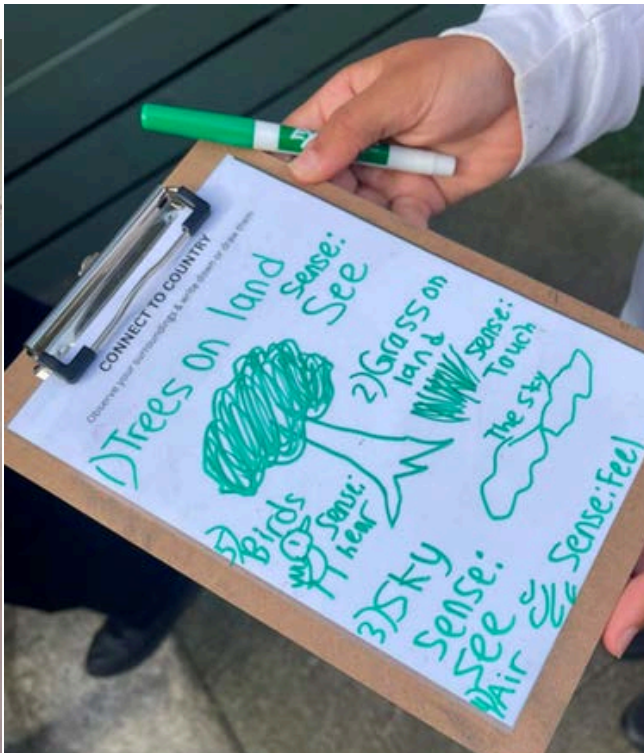 CONNECT TO COUNTRY
Observe your surroundings & write down or draw them
1) Trees on land
sense:
See
2) Grass on
land
sense:
Touch
The Sky
3) Sky
sense:
See
4) Air
Sense: Feel
5)
Birds
sense:
hear